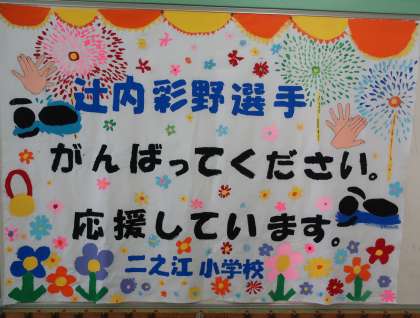 辻内彩野選手
がんばってください。
応援しています。
二之江小学校